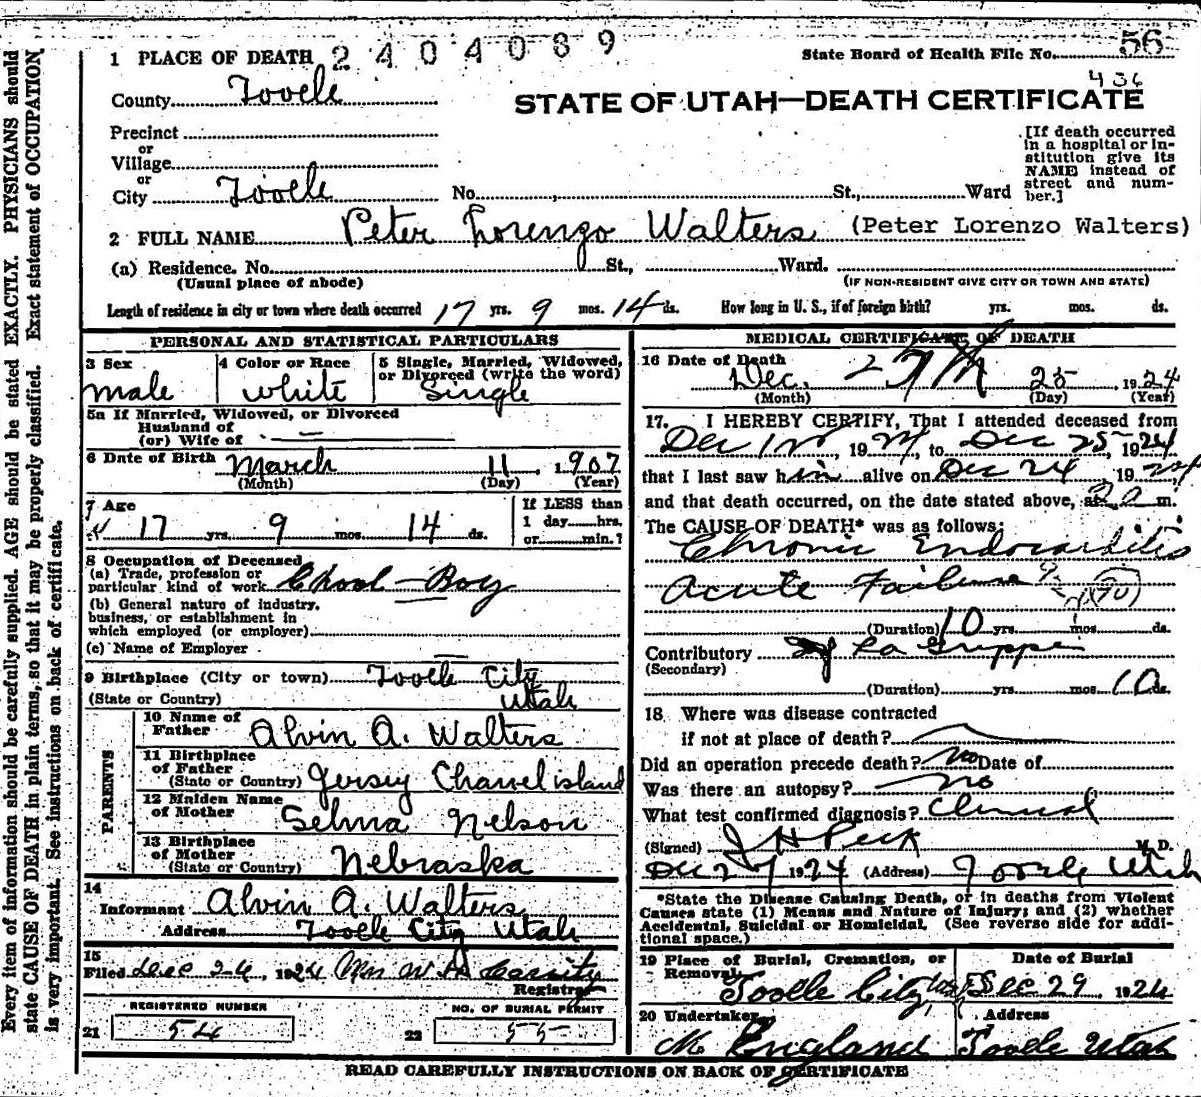 1 PLACE OF DEATH 2404089
State Board of Health File No. 56
436
County Tooele
STATE OF UTAH—DEATH CERTIFICATE
Precinct
or
Village
or
City Tooele No. St., Ward
[If death occurred
in a hospital or in-
stitution give its
NAME instead of
street and num-
ber.]
2 FULL NAME Peter Lorenzo Walters (Peter Lorenzo Walters)
(a) Residence. No. St., Ward.
(Usual place of abode) (IF NON-RESIDENT GIVE CITY OR TOWN AND STATE)
Length of residence in city or town where death occurred 17 yrs. 9 mos. 14 ds. How long in U. S., if of foreign birth? yrs. mos. ds.
PERSONAL AND STATISTICAL PARTICULARS
3 Sex
male
4 Color or Race
white
5 Single, Married, Widowed,
or Divorced (write the word)
Single
5a If Married, Widowed, or Divorced
Husband of
(or) Wife of
6 Date of Birth March 11, 1907
(Month) (Day) (Year)
7 Age
17 yrs. 9 mos. 14 ds.
If LESS than
1 day hrs.
or min.?
8 Occupation of Deceased
(a) Trade, profession or
particular kind of work School-Boy
(b) General nature of industry,
business, or establishment in
which employed (or employer)
(c) Name of Employer
9 Birthplace (City or town) Tooele City
(State or Country) Utah
PARENTS
10 Name of
Father Alvin A. Walters
11 Birthplace
of Father
(State or Country) Jersey Channel island
12 Maiden Name
of Mother Selma Nelson
13 Birthplace
of Mother
(State or Country) Nebraska
14
Informant Alvin A. Walters
Address Tooele City Utah
15
Filed Dec 26, 1924
Registrar
REGISTERED NUMBER
21 54
NO. OF BURIAL PERMIT
22 55
MEDICAL CERTIFICATE OF DEATH
16 Date of Death
Dec. 25, 1924
(Month) (Day) (Year)
17. I HEREBY CERTIFY, That I attended deceased from
Dec 1924, to Dec 25, 1924
that I last saw him alive on Dec 24 1924
and that death occurred, on the date stated above, at 2 a m.
The CAUSE OF DEATH* was as follows:
Chronic Endocarditis
Acute Failure (90)
(Duration) 10 yrs. mos. ds.
Contributory La Grippe
(Secondary)
(Duration) yrs. mos. 10 ds.
18. Where was disease contracted
if not at place of death?
Did an operation precede death? no Date of
Was there an autopsy? no
What test confirmed diagnosis? Clinical
(Signed) J H Peck M. D.
Dec 27 1924 (Address) Tooele Utah
*State the Disease Causing Death, or in deaths from Violent
Causes state (1) Means and Nature of Injury; and (2) whether
Accidental, Suicidal or Homicidal. (See reverse side for addi-
tional space.)
19 Place of Burial, Cremation, or
Removal
Tooele City, Utah
Date of Burial
Dec 29, 1924
20 Undertaker
M England
Address
Tooele Utah
READ CAREFULLY INSTRUCTIONS ON BACK OF CERTIFICATE
Every item of information should be carefully supplied. AGE should be stated EXACTLY. PHYSICIANS should
state CAUSE OF DEATH in plain terms, so that it may be properly classified. Exact statement of OCCUPATION
is very important. See instructions on back of certificate.